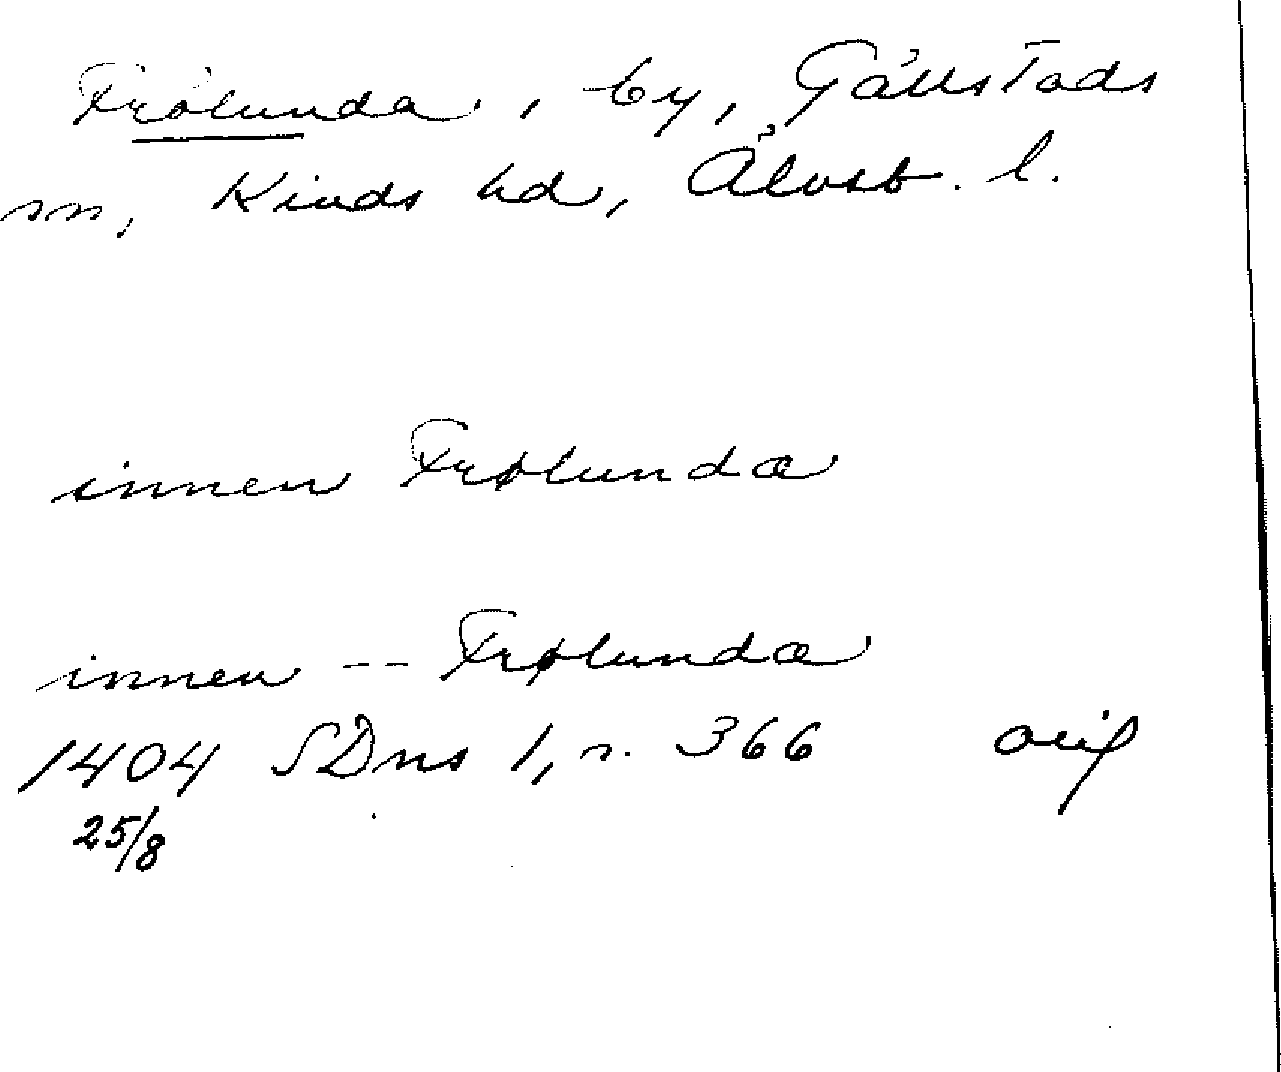 Frölunda, by, Gällstads
sn, Kinds hd, Älvsb. l.
innen Frølunda
innen -- Frølunda
1404 SDns 1, n. 366 orig
25/8